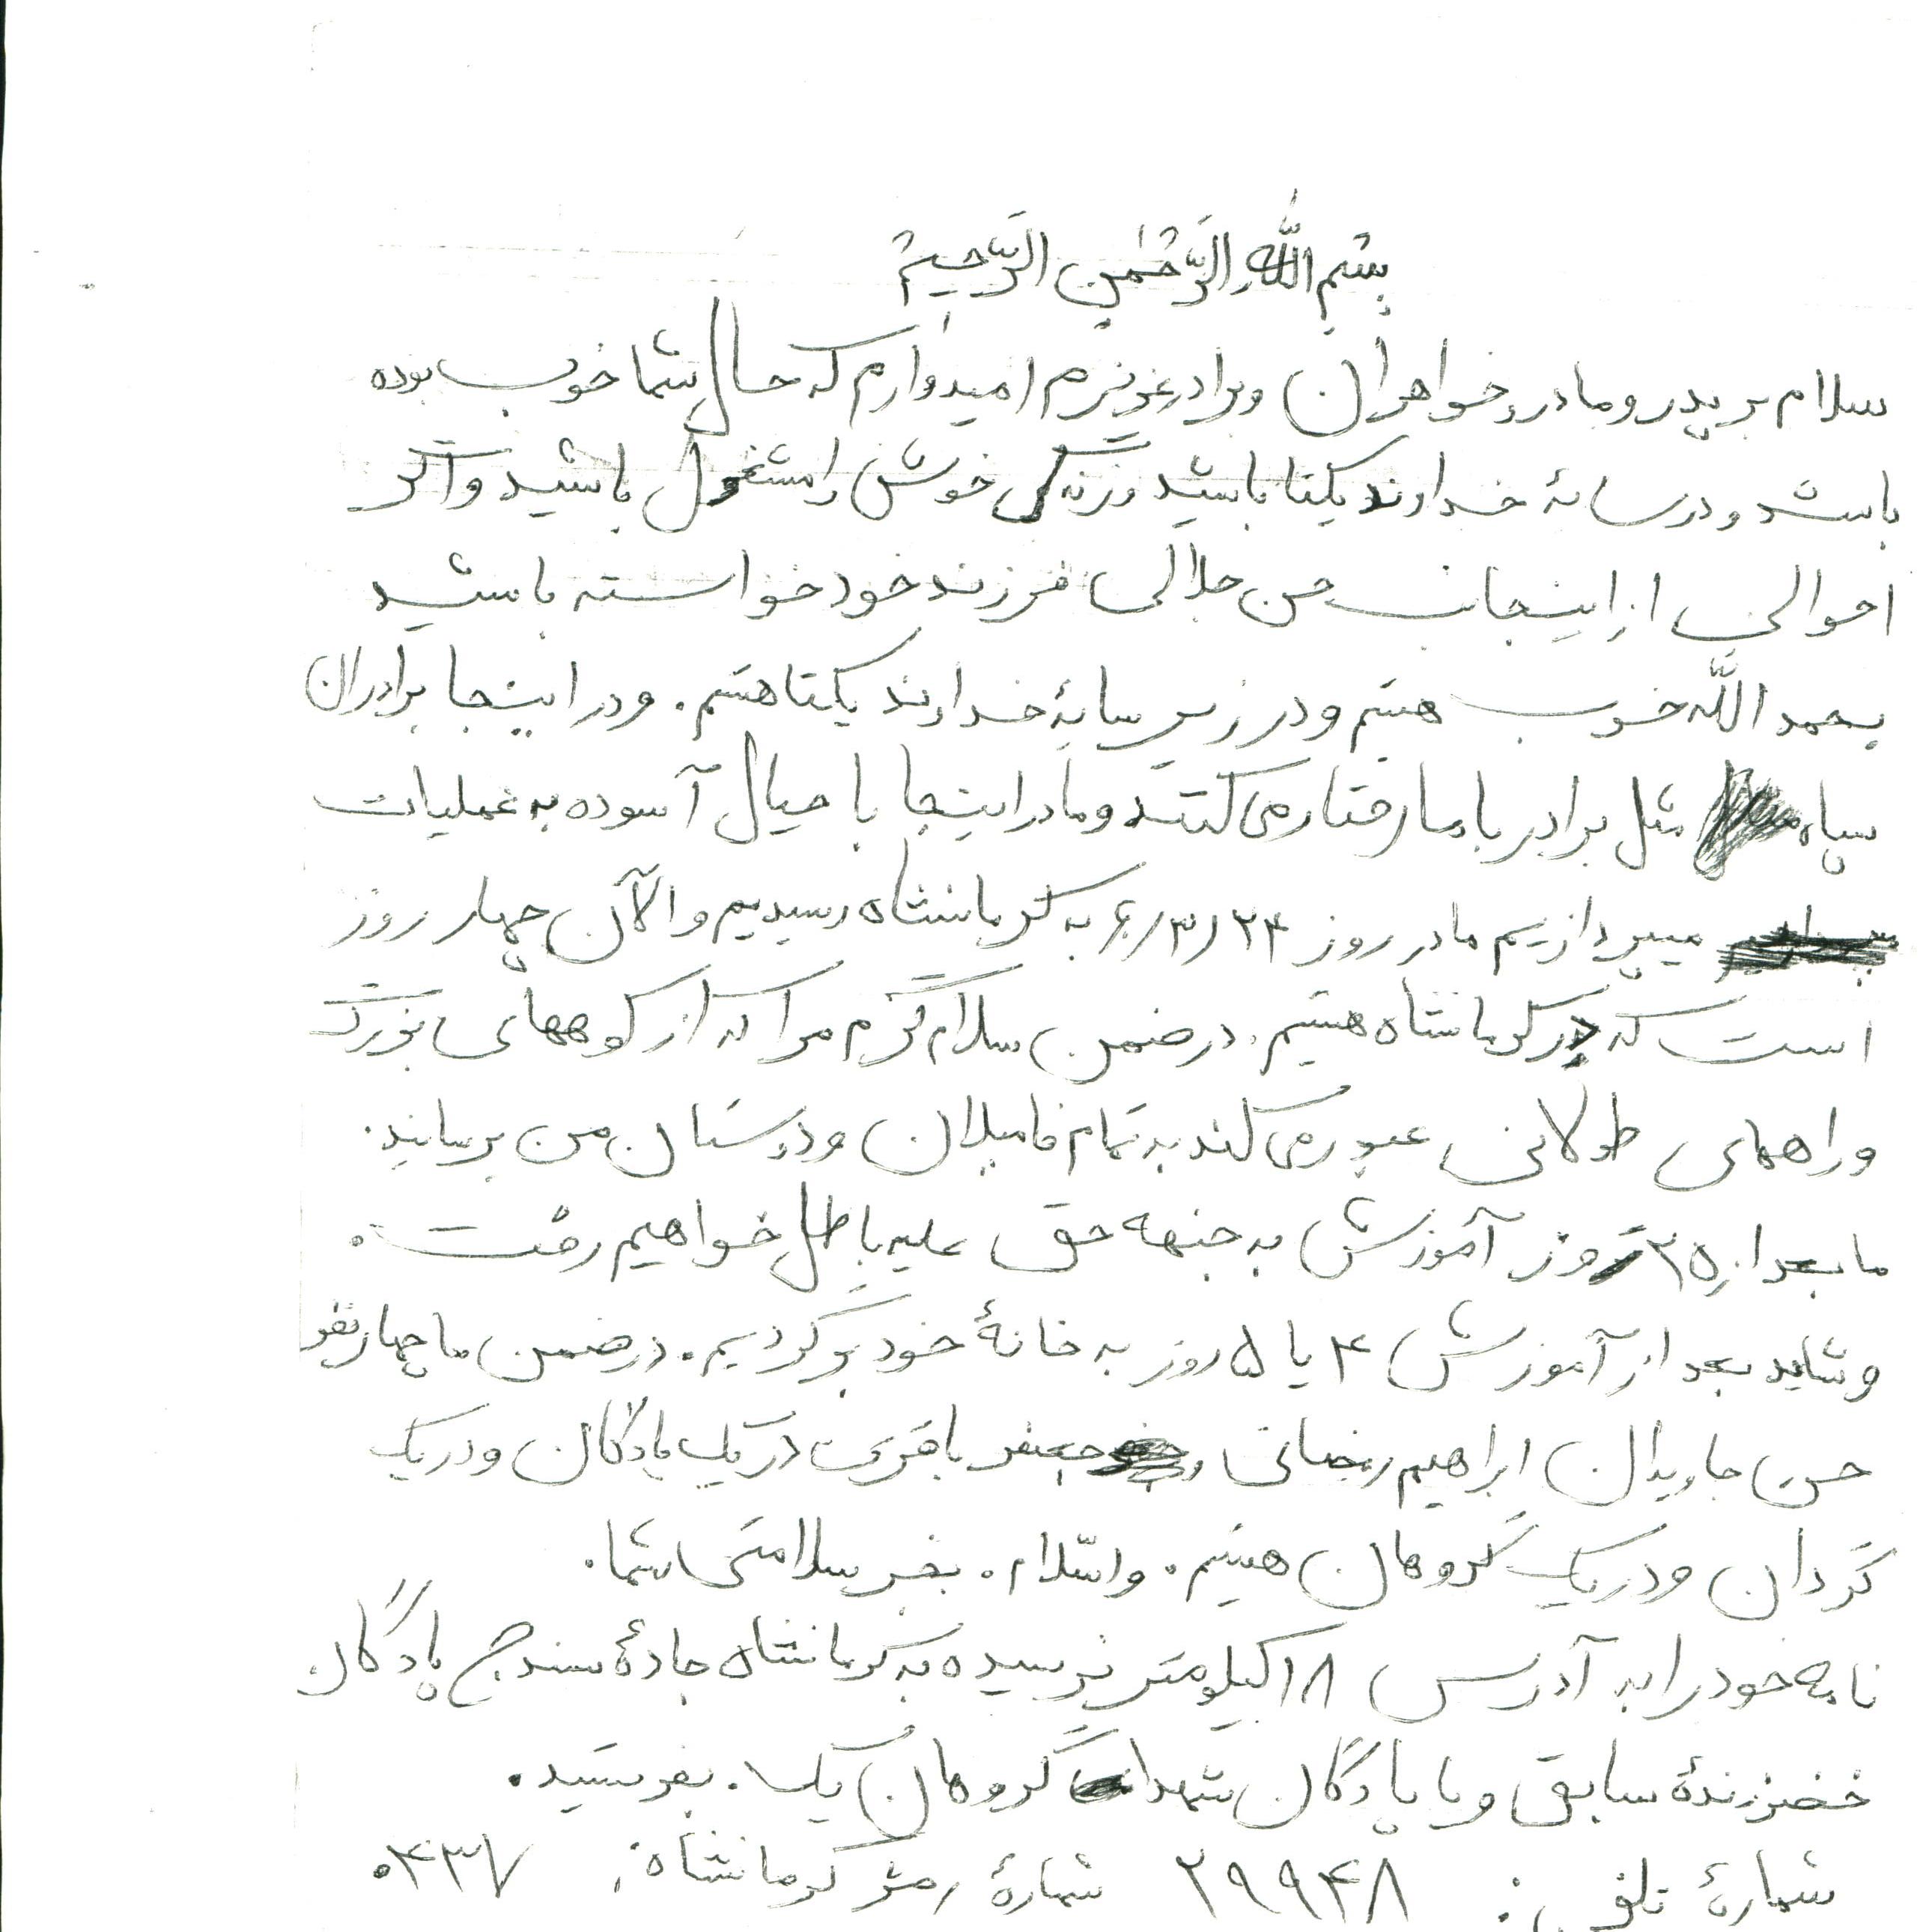 بِسْمِ اللّهِ الرَّحْمنِ الرَّحیمْ
سلام بر پدر و مادر و خواهران و برادر عزیزم امیدوارم که حال شما خوب بوده
باشد و در سایهٔ خداوند یکتا باشید و زندگی خوش را مشغول باشید و اگر
احوالی از اینجانب حسن جلالی فرزند خود خواسته باشید
بحمد اللّه خوب هستم و در زیر سایهٔ خداوند یکتا هستم. و در اینجا برادران
سپاه مثل برادر با ما رفتار می کنند و ما در اینجا با خیال آسوده به عملیات
میپردازیم ما در روز ۲۴/۳/۶ به کرمانشاه رسیدیم و الآن چهار روز
است که در کرمانشاه هستیم. در ضمن سلام گرم مرا که از کوههای بزرگ
و راههای طولانی عبور می کند به تمام فامیلان و دوستان من برسانید.
ما بعد از ۲۵ روز آموزش به جبهه حق علیه باطل خواهیم رفت.
و شاید بعد از آموزش ۴ یا ۵ روز به خانهٔ خود برگردیم. در ضمن ما چهار نفر
حسن جاویدان ابراهیم رمضانی و جعفر باقری در یک پادگان و در یک
گردان و در یک گروهان هستیم. والسّلام. بغیر سلامتی شما.
نامه خود را به آدرس ۱۸ کیلومتر نرسیده به کرمانشاه جادهٔ سنندج پادگان
سابق و یا پادگان شهدا گروهان یک. بفرستید.
شمارهٔ تلفن: ۲۹۹۴۸ شمارهٔ رمز کرمانشاه: ۰۴۳۷